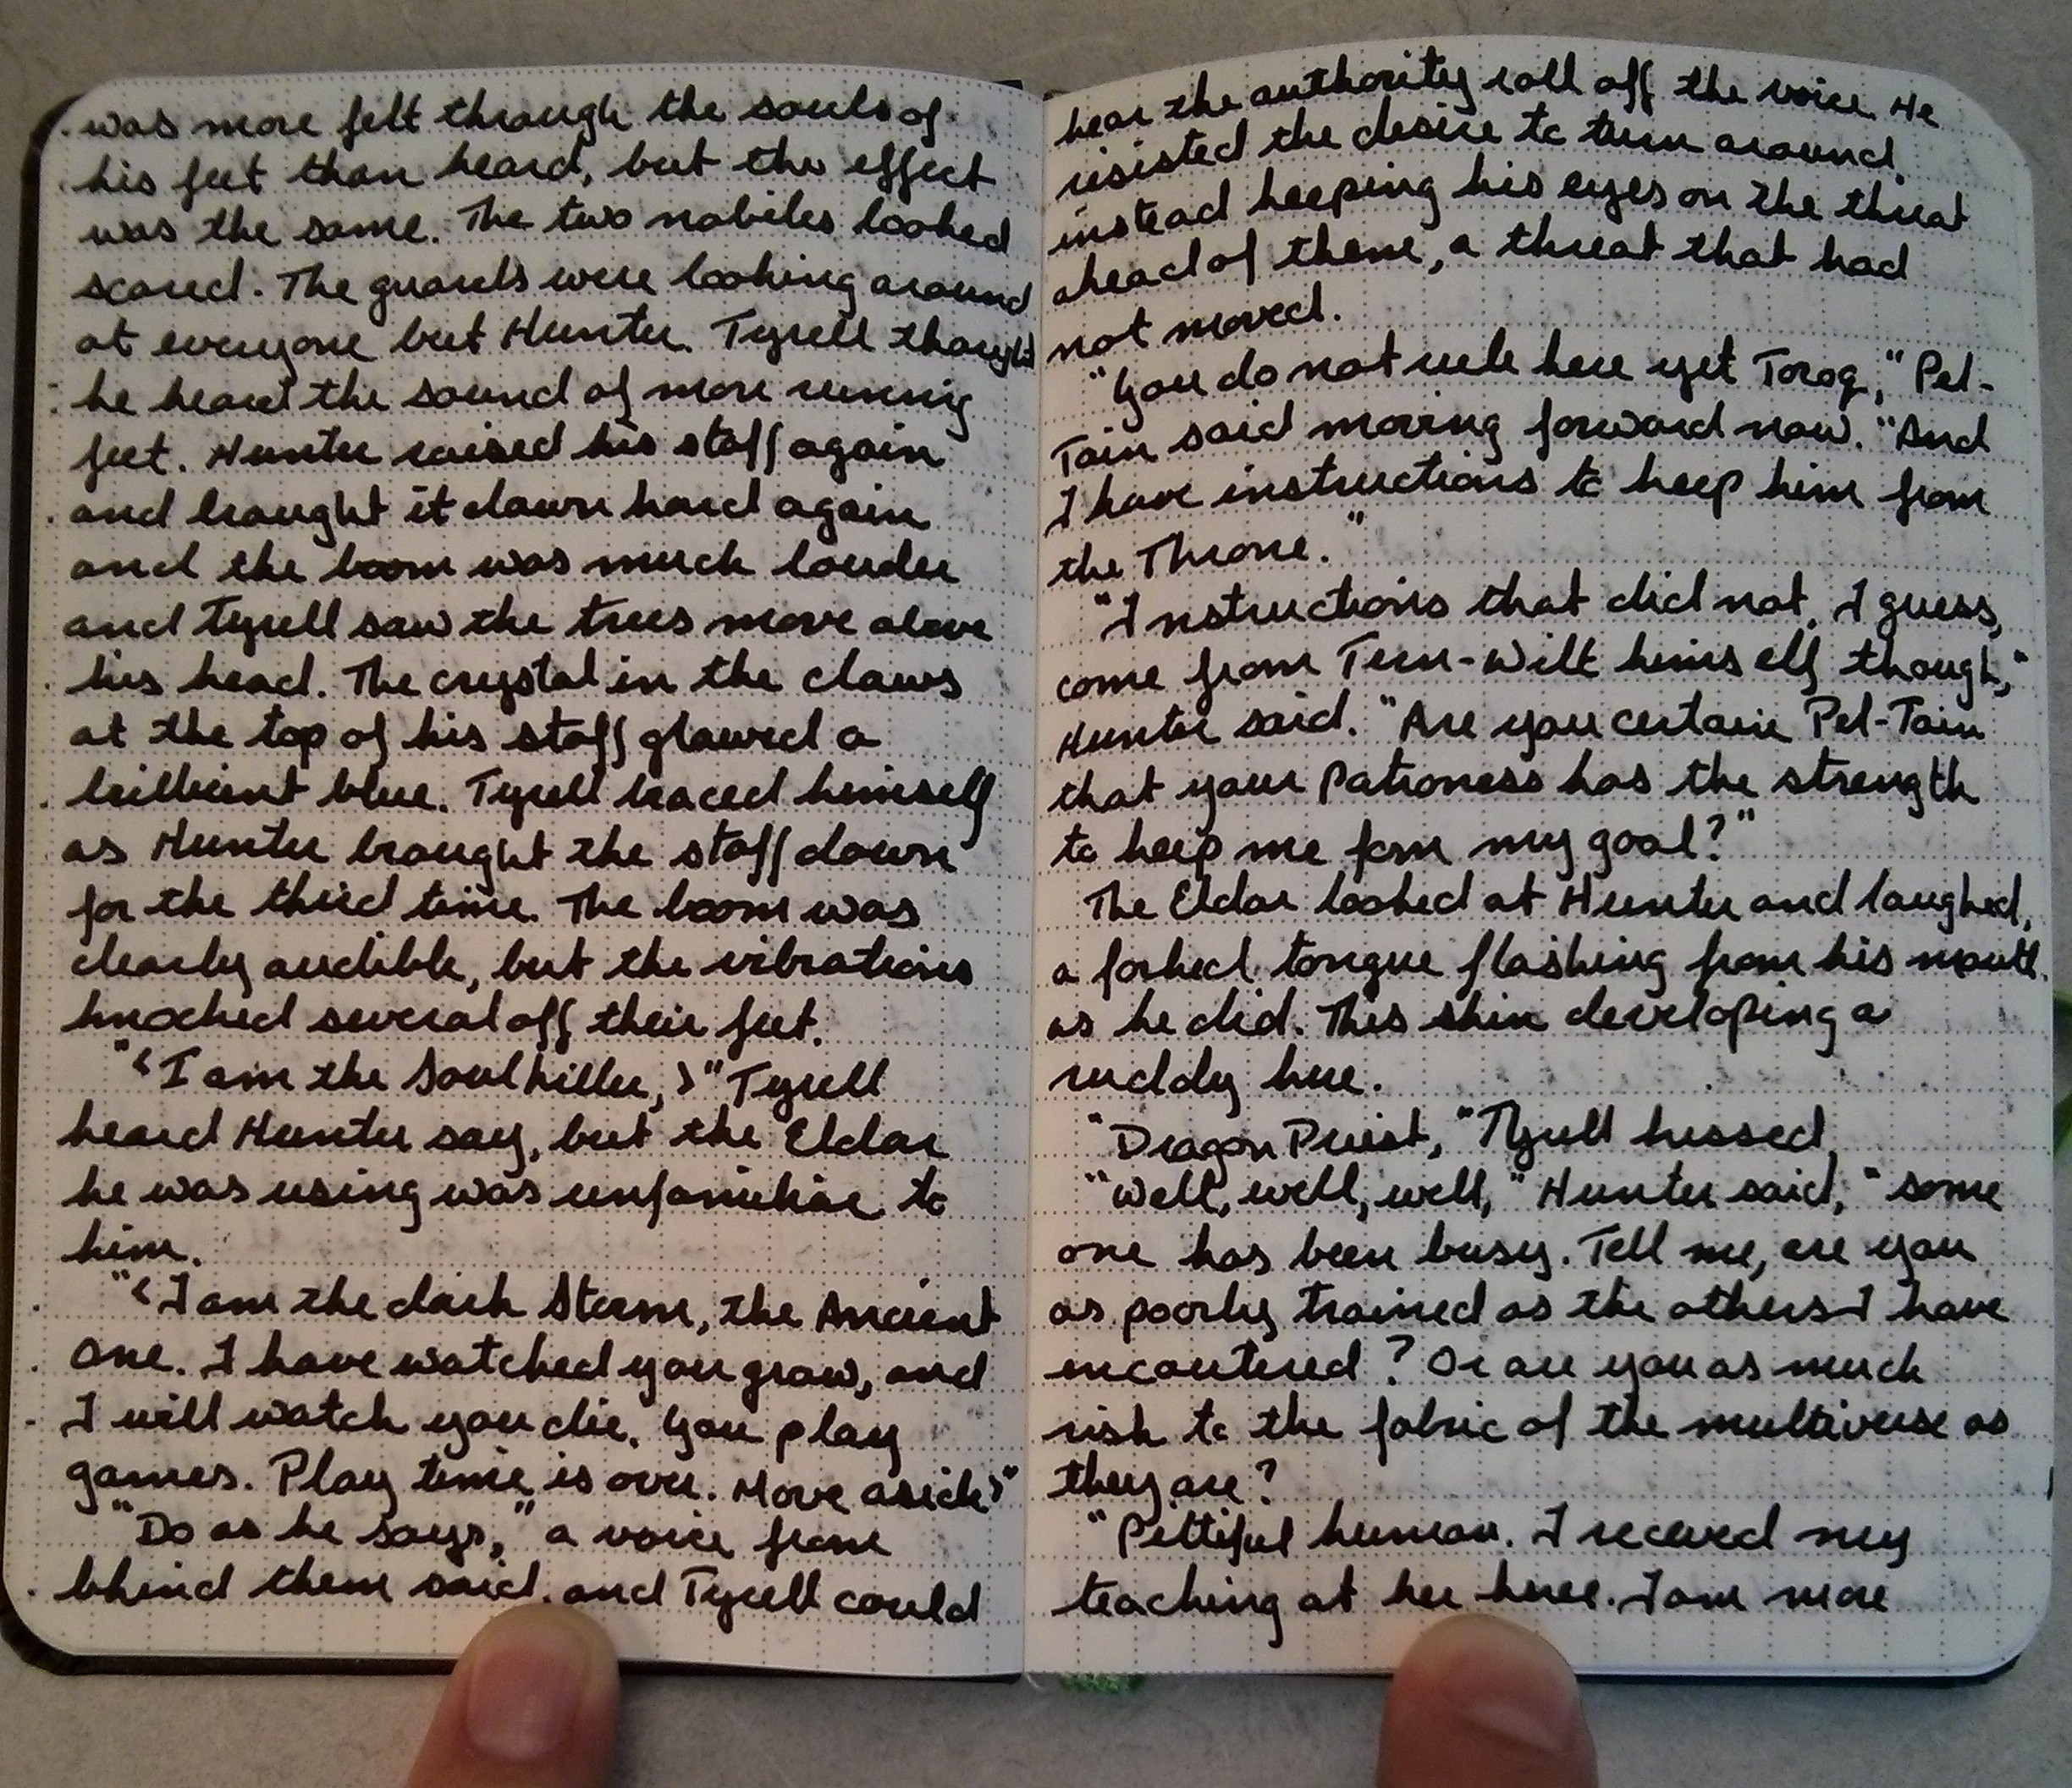 was more felt through the souls of
his feet than heard, but the effect
was the same. The two nobiles looked
scared. The guards were looking around
at everyone but Hunter. Tyrell thought
he heard the sound of more runnig
feet. Hunter raised his staff again
and brought it down hard again
and the boom was much louder
and Tyrell saw the trees move above
his head. The crystal in the claws
at the top of his staff glowed a
brilliant blue. Tyrell braced himself
as Hunter brought the staff down
for the third time. The boom was
clearly audible, but the vibrations
knocked several off their feet.
"‹I am the Soulkiller,›" Tyrell
heard Hunter say, but the Eldar
he was using was unfamiliar to
him.
"‹I am the dark Storm, the Ancient
One. I have watched you grow, and
I will watch you die. You play
games. Play time is over. Move aside›"
"Do as he says," a voice from
behind them said, and Tyrell could
hear the authority roll off the voice. He
resisted the desire to turn around,
instead keeping his eyes on the threat
ahead of them, a threat that had
not moved.
"You do not rule here yet Torog," Pel-
Tain said moving forward now. "And
I have instructions to keep him from
the Throne."
"Instructions that did not, I guess,
come from Teen-Wilt himself though,"
Hunter said. "Are you certain Pel-Tain
that your Patroness has the strength
to keep me form my goal?"
The Eldar looked at Hunter and laughed,
a forked tongue flashing from his mouth
as he did. This skin developing a
ruddy hue.
"Dragon Priest," Tyrell hissed.
"Well, well, well," Hunter said, "some
one has been busy. Tell me, are you
as poorly trained as the others I have
encoutered? Or are you as much
risk to the fabric of the multiverse as
they are?
"Pettiful human. I receved my
teaching at her knee. I am more